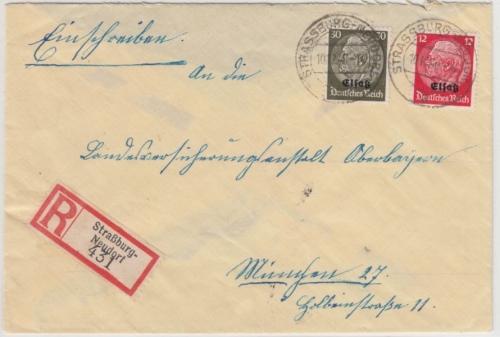 Einschreiben.
30 30
Elsaß
Deutsches Reich
12 12
Elsaß
Deutsches Reich
STRASSBURG-
STRASSBURG-
An die
Landesversicherungsanstalt Oberbayern
R
Straßburg-
Neudorf
431
München 27.
Holbeinstraße 11.